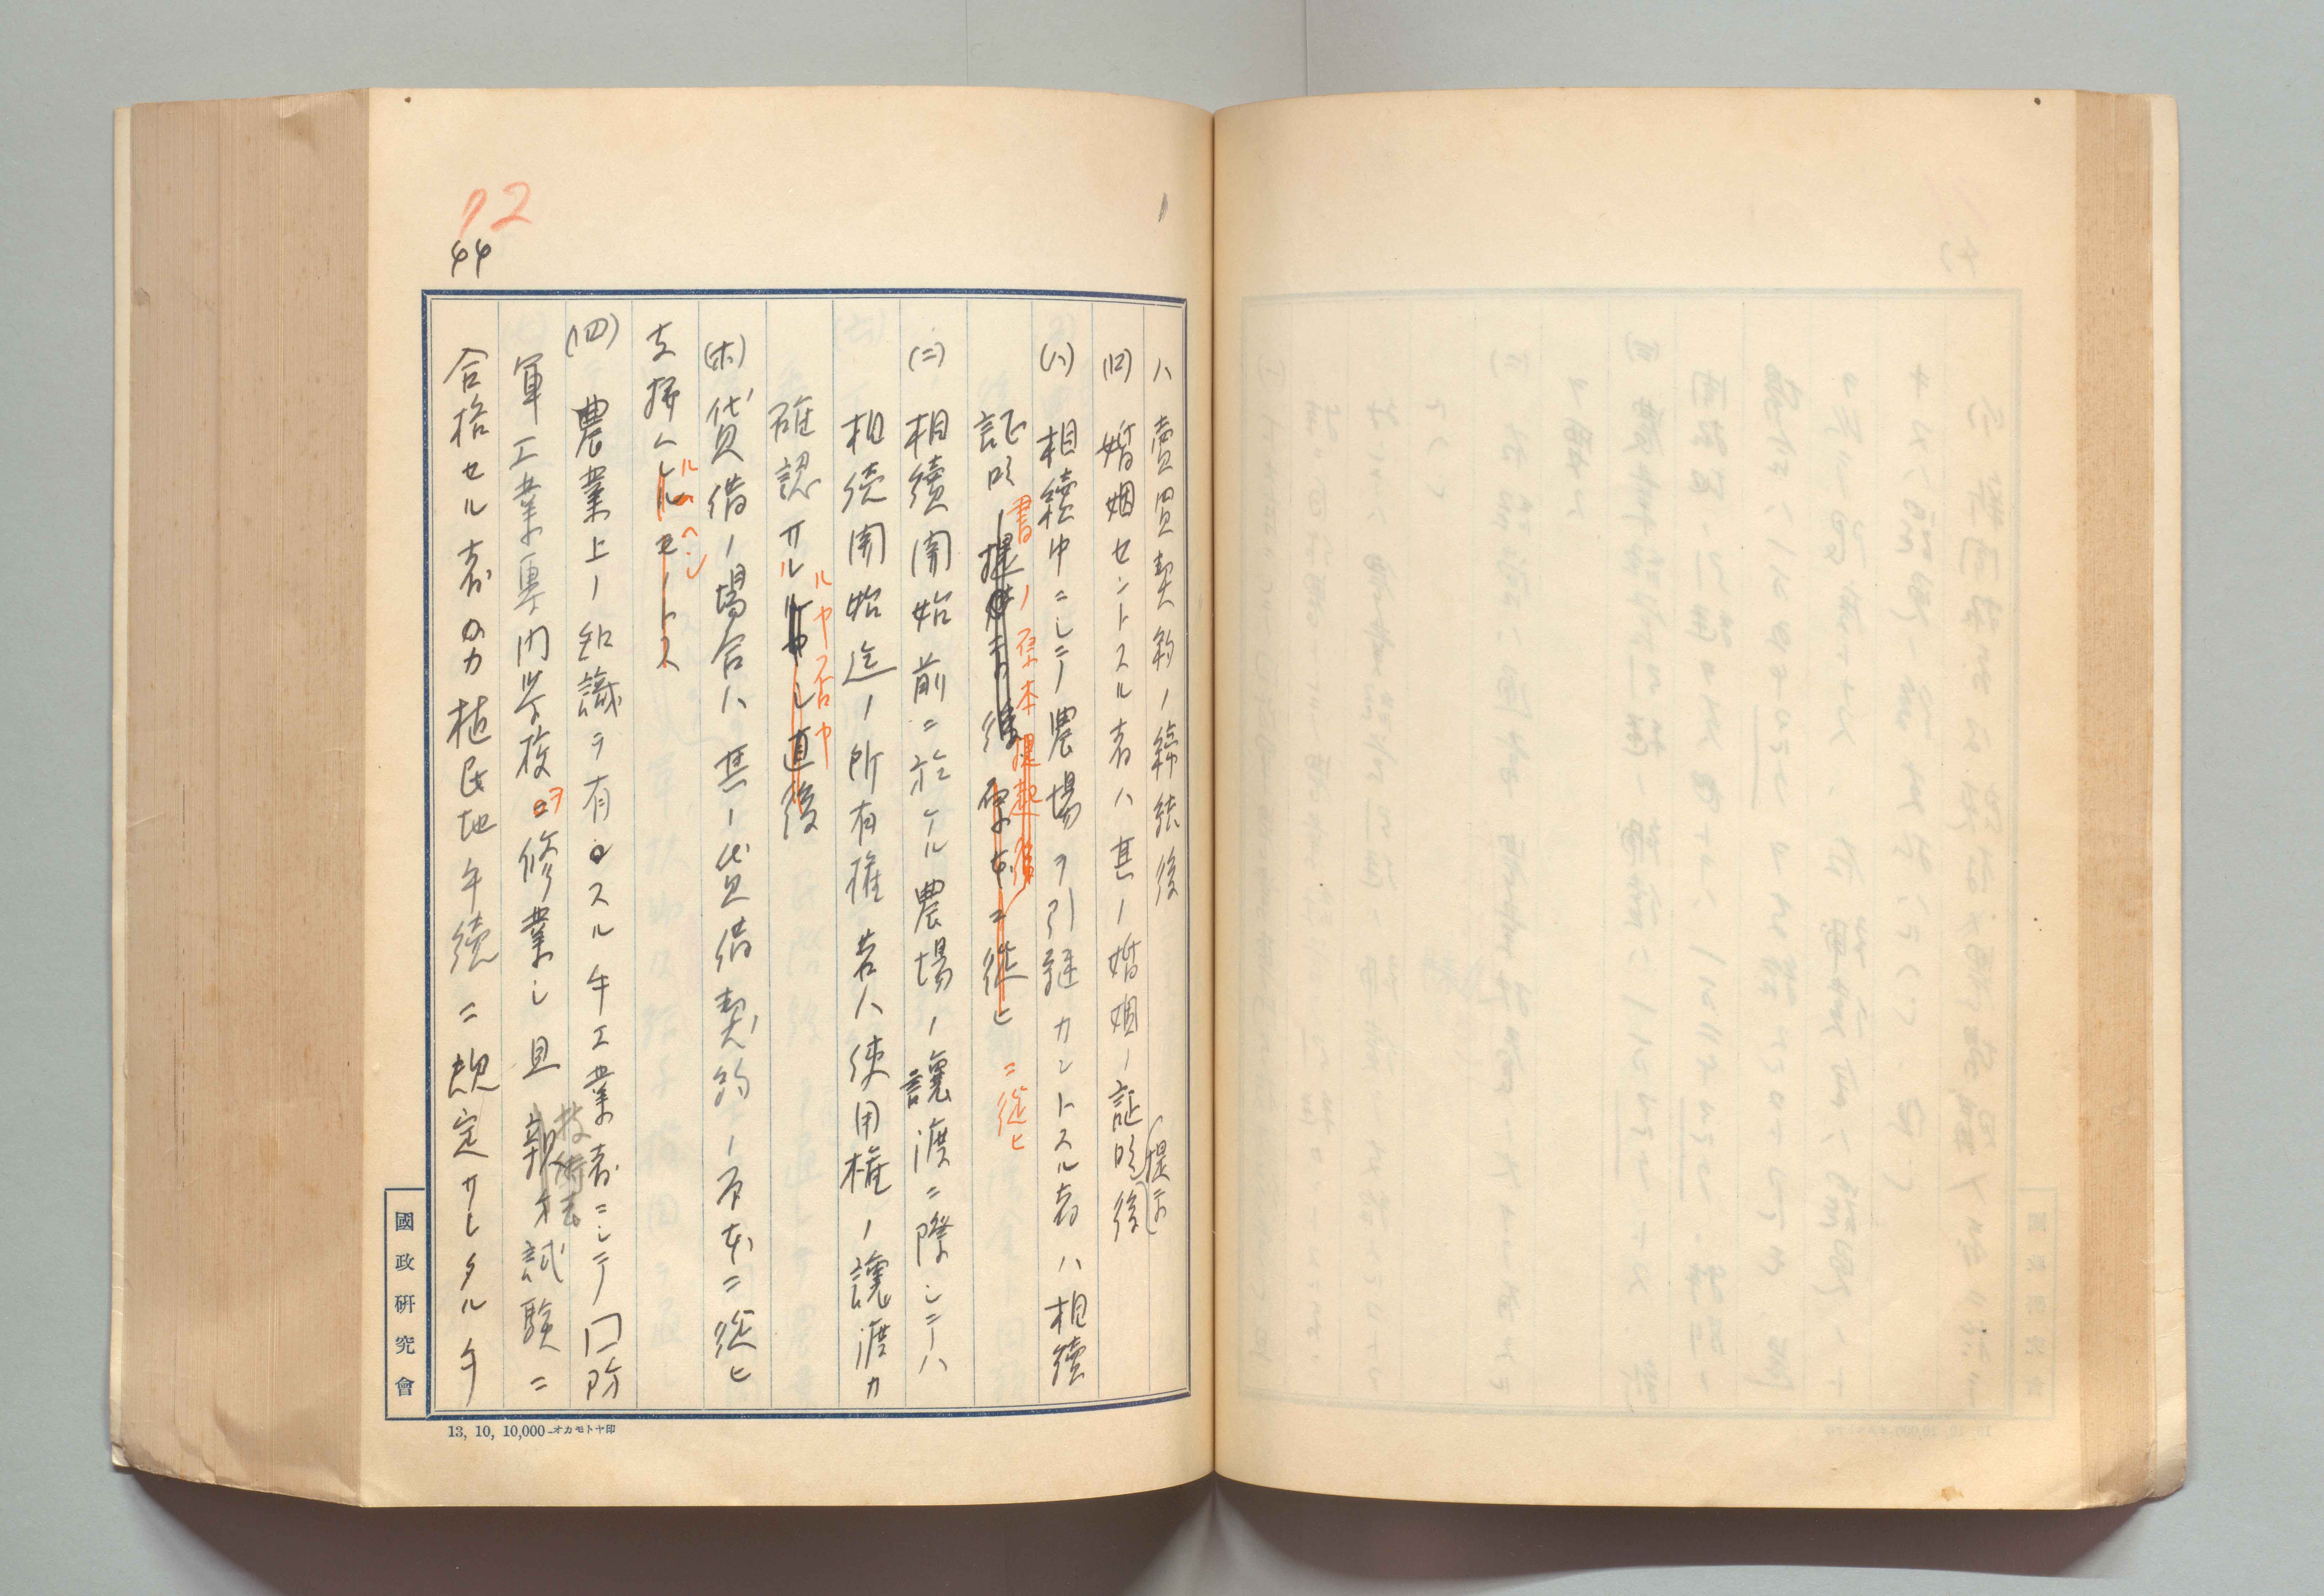 72
44
ハ賣買契約ノ締結後
(ロ) 婚姻セントスル者ハ其ノ婚姻ノ証明(提示)後
(ハ) 相續中ニシテ農場ヲ引継カントスル者ハ相續
証明書ノ原本提起後原本ニ従ヒ
ニ従ヒ
(ニ) 相續開始前ニ於ケル農場ノ讓渡ニ際シテハ
相続開始迄ノ所有権若ハ使用権ノ讓渡カ
確認サルルヤ否ヤ直後
(ホ) 賃貸借ノ場合ハ其ノ賃貸借契約ノ原本ニ従ヒ
支拂ハルヘシ
(四) 農業上ノ知識ヲ有スル手工業者ニシテ国防
軍工業専門学校ヲ修業シ且技術者試験ニ
合格セル者カ植民地手続ニ規定サレタル手
國政研究會
13, 10, 10,000—オカモトヤ印